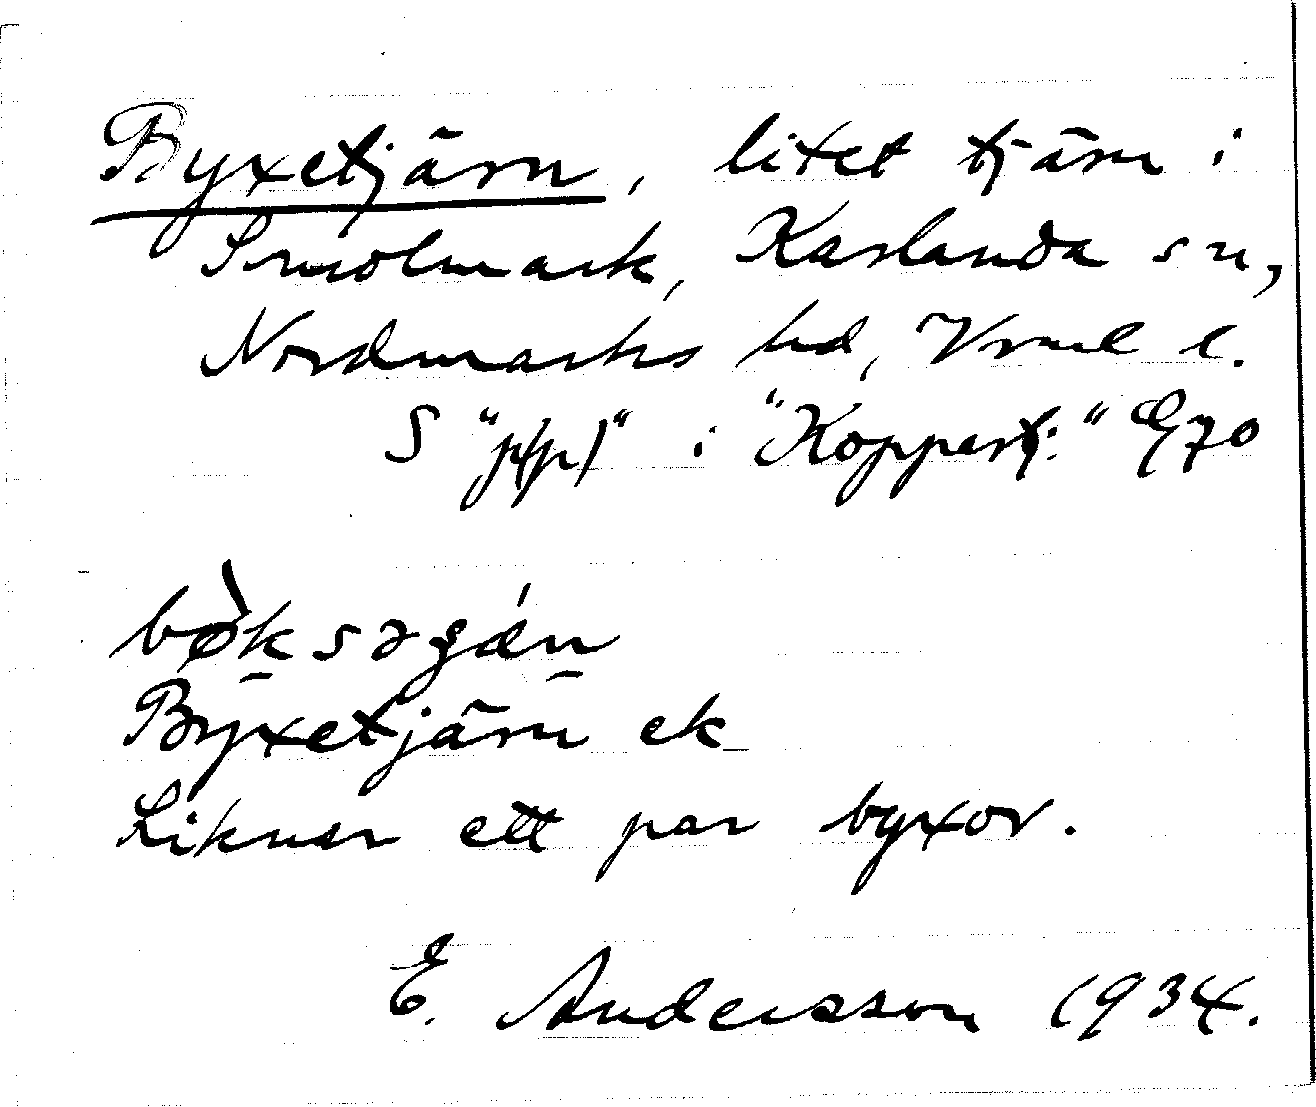 Byxetjärn, litet tjärn i
Smolmark, Karlanda sn,
Nordmarks hd, Vrml l.
S "p(p)" i "Koppartj:" E70
bø̀ksəgǽn
Byxetjärn ek
Liknar ett par byxor.
E. Andersson 1934.